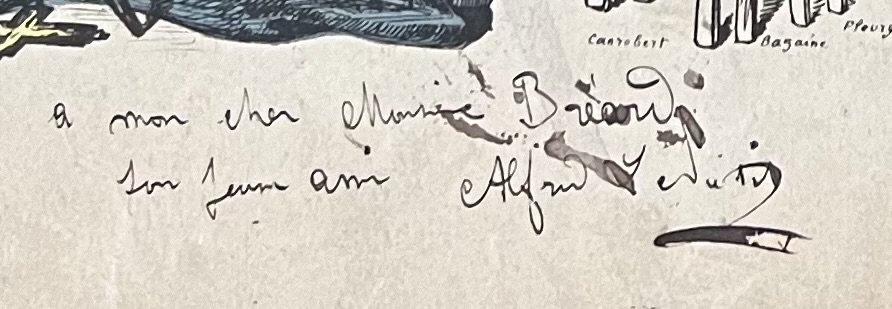 Canrobert
Bazaine
Fleury
a mon cher Monsieur Bréard
Son jeune ami Alfred Le Petit